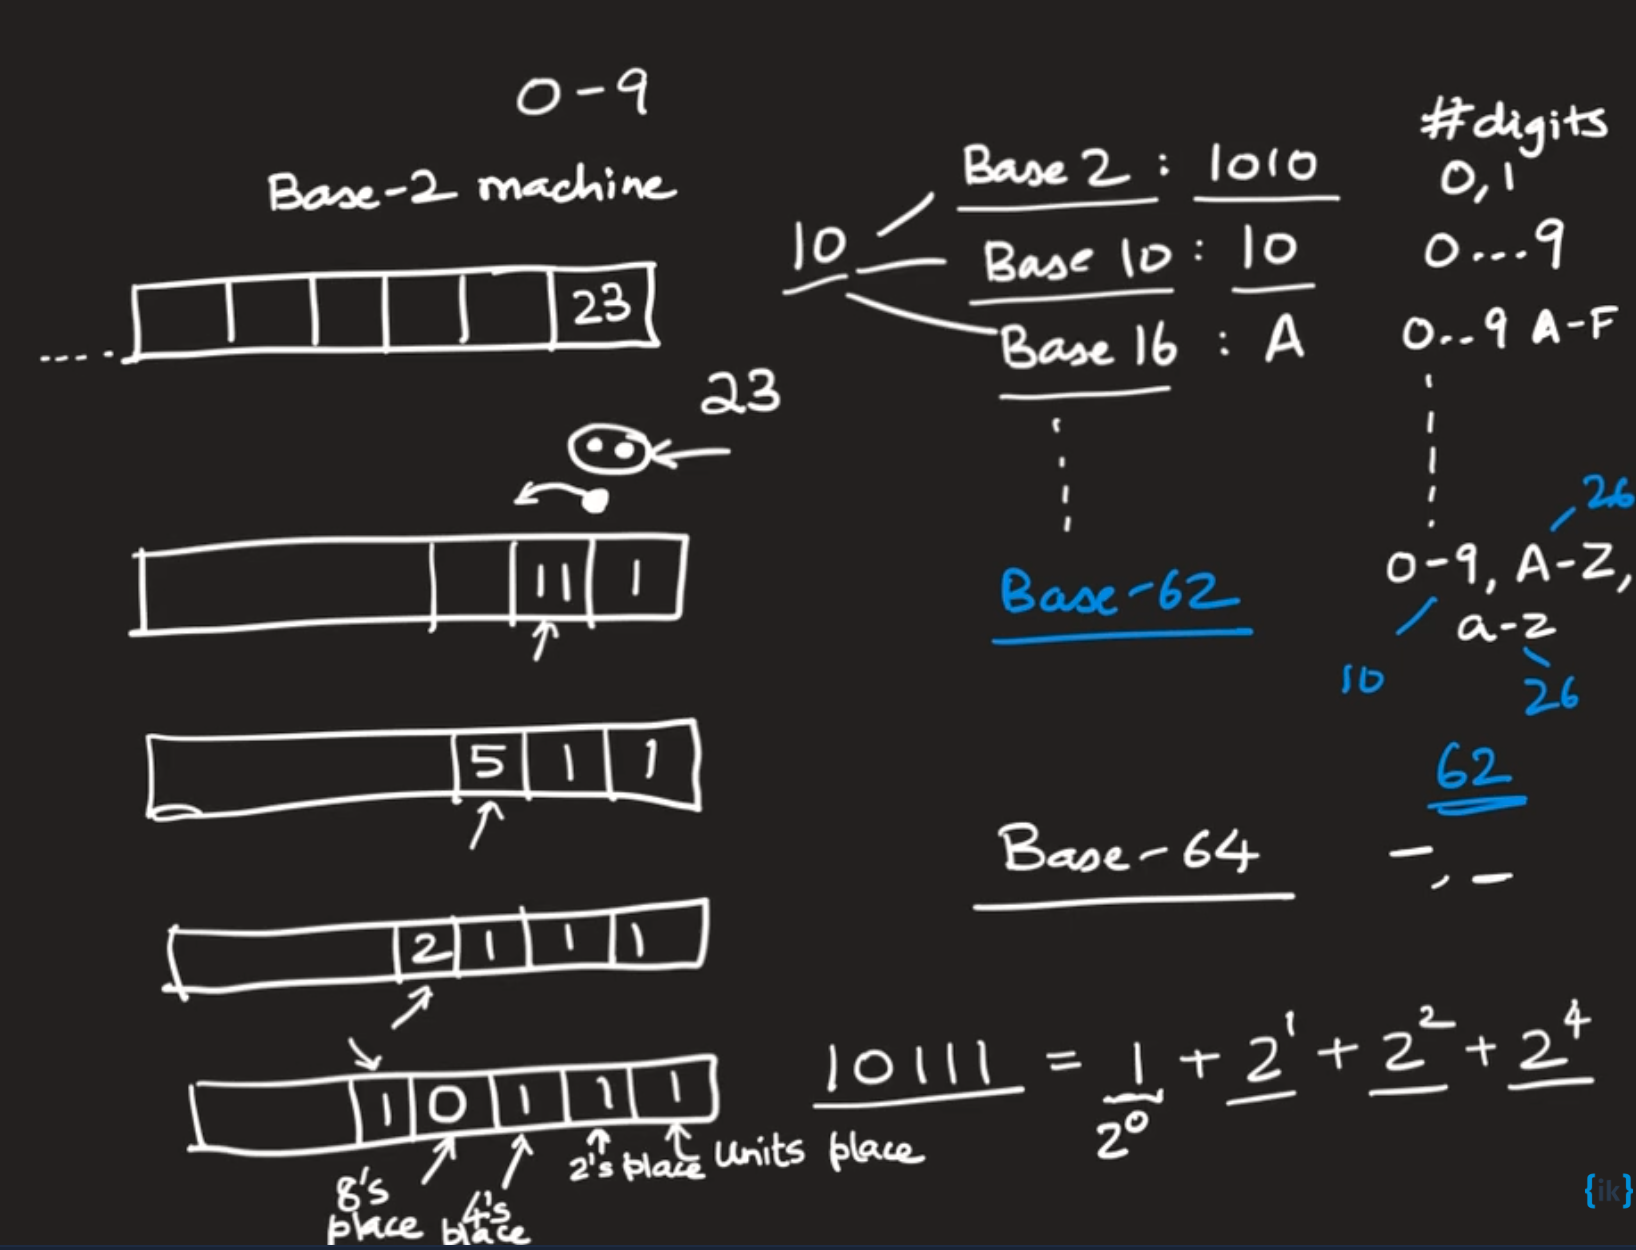 0-9
Base-2 machine
23
23
11 1
5 1 1
2 1 1 1
1 0 1 1 1
8's place 4's place 2's place Units place
10
Base 2 : 1010
Base 10 : 10
Base 16 : A
Base-62
Base-64
#digits
0,1
0...9
0..9 A-F
26
0-9, A-Z,
a-z
10
26
62
-, -
10111 = 1 + 2¹ + 2² + 2⁴
2⁰
{ik}